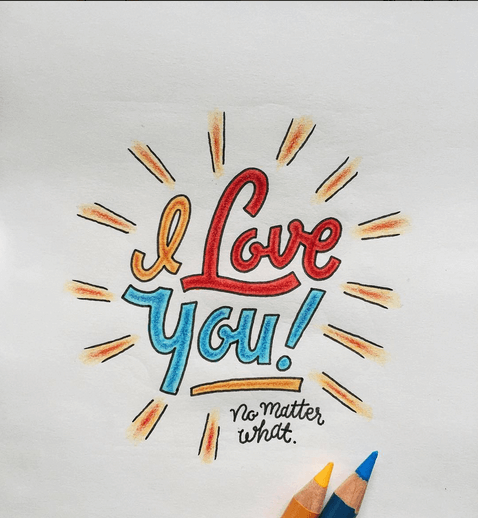 I Love
You!
No Matter
what.